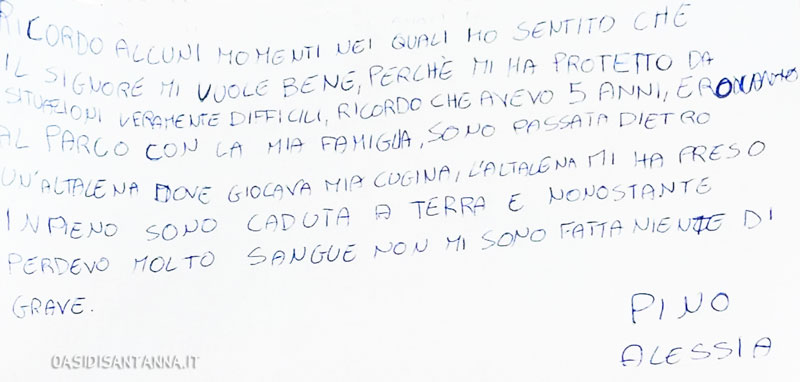 RICORDO ALCUNI MOMENTI NEI QUALI HO SENTITO CHE
IL SIGNORE MI VUOLE BENE, PERCHÈ MI HA PROTETTO DA
SITUAZIONI VERAMENTE DIFFICILI, RICORDO CHE AVEVO 5 ANNI,
AL PARCO CON LA MIA FAMIGLIA, SONO PASSATA DIETRO
UN'ALTALENA DOVE GIOCAVA MIA CUGINA, L'ALTALENA MI HA PRESO
IN PIENO SONO CADUTA A TERRA E NONOSTANTE
PERDEVO MOLTO SANGUE NON MI SONO FATTA NIENTE DI
GRAVE.
PINO
ALESSIA
OASIDISANTANNA.IT